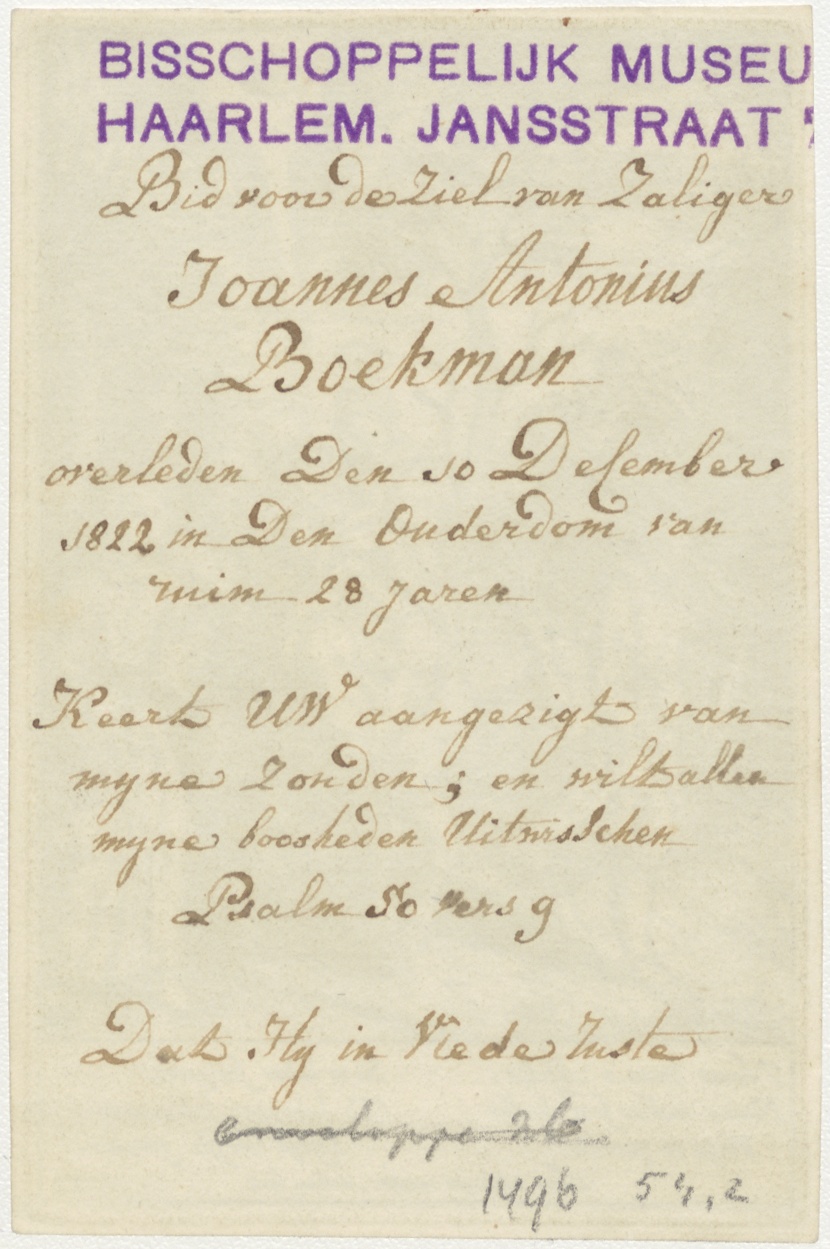 BISSCHOPPELIJK MUSEU
HAARLEM. JANSSTRAAT
Bid voor de Ziel van Zaliger
Joannes Antonius
Boekman
overleden Den 10 Desember
1822 in Den Ouderdom van
ruim 28 jaren
Keert UW aangezigt van
myne Zonden; en wilt allen
myne boosheden Uitwisschen
Psalm 50 vers 9
Dat Hy in Vrede Ruste
enveloppe
1496 54,2